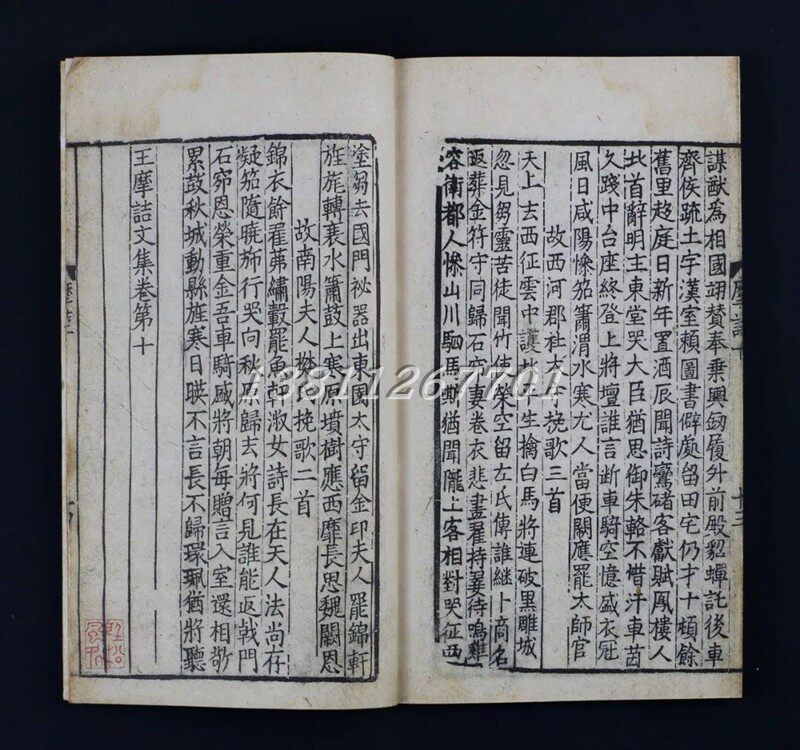 謀猷為相國翊贊奉乘輿劒履外前殿貂蟬託後車
齊侯疏土字漢室賴圖書僻處留田宅仍才十頃餘
舊里趍庭日新年置酒辰聞詩鸞渚客獻賦鳳樓人
北首辭明主東堂哭大臣猶思御朱輅不惜汗車茵
久踐中台座終登上將壇誰言断車騎空憶盛衣冠
風日咸陽慘笳簫渭水寒尤人當便闕應罷太師官
故西河郡杜太守挽歌三首
天上去西征雲中護北平生擒白馬將連破黑雕城
忽見芻靈苦徒聞竹使榮空留左氏傳誰継卜商名
返葬金符守同歸石窌妻卷衣悲畫翟持翣待鳴雞
容衛都人慘山川駟馬嘶猶聞隴上客相對哭征西
塗芻去國門祕器出東國太守留金印夫人罷錦軒
旌旄轉衰水簫鼓上寒原墳樹應西靡長思魏闕恩
故南陽夫人樊氏挽歌二首
錦衣餘翟茀繡轂罷魚軒淑女詩長在天人法尚存
凝笳隨曉旆行哭向秋原歸去將何見誰能返戟門
石窌恩榮重金吾車騎盛將朝每贈言入室還相敬
累鼓秋城動縣旌寒日暎不言長不歸環珮猶將聽
王摩詰文集卷第十
13811267701